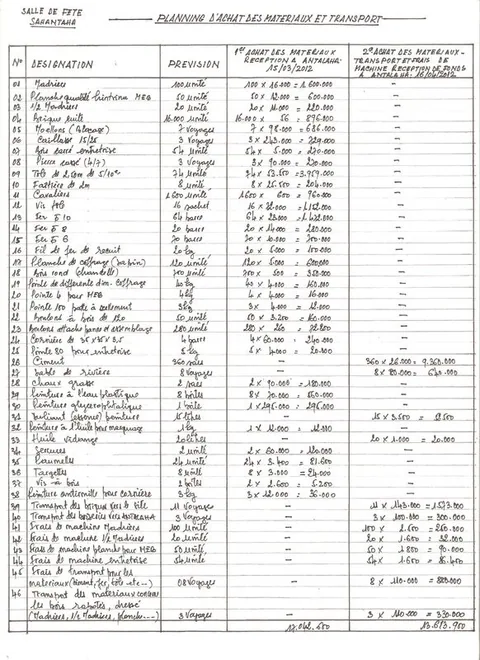 SALLE DE FETE
SAHANTAHA
PLANNING D'ACHAT DES MATERIAUX ET TRANSPORT
N° DESIGNATION PREVISION 1er ACHAT DES MATERIAUX RECEPTION A ANTALAHA: 15/03/2012 2e ACHAT DES MATERIAUX- TRANSPORT ET FRAIS DE MACHINE RECEPTION DE FONDS A ANTALAHA: 16/04/2012
01 Madriers 100 unité 100 x 16.000 = 1.600.000 —
02 Planche qualité hintsina MEG 50 unité 50 x 12.000 = 600.000 —
03 1/2 Madriers 20 unité 20 x 11.000 = 220.000 —
04 Brique cuite 16.000 unité 16.000 x 56 = 896.000 —
05 Moellons (Blocage) 7 voyages 7 x 98.000 = 686.000 —
06 Caillasse 15/25 3 voyages 3 x 243.000 = 729.000 —
07 Bois carré entretoise 54 unité 54 x 5.000 = 270.000 —
08 Pierre cassé (4/7) 3 voyages 3 x 90.000 = 270.000 —
09 Tôle de 5/10e 74 unité 74 x 53.500 = 3.959.000 —
10 Faîtière de 2m 8 unité 8 x 25.500 = 204.000 —
11 Cavaliers 1600 unité 1600 x 600 = 960.000 —
12 Vis tôle 16 pachet —
13 Fer E 10 64 bares —
14 Fer E 8 20 bares 20 x 14.000 = 280.000 —
15 Fer E 6 70 bares 70 x 10.000 = 700.000 —
16 Fil de fer de recuit 20 kg 20 x 5.000 = 100.000 —
17 Planche de coffrage (sapin) 120 unité 120 x 5.000 = 600.000 —
18 Bois rond (chandelle) 700 unité 700 x 500 = 350.000 —
19 Pointe de différente dim. coffrage 40 kg 40 x 4.000 = 160.000 —
20 Pointe 4 pour MEG 4 kg 4 x 4.000 = 16.000 —
21 Pointe 100 3 kg 3 x 4.000 = 12.000 —
22 Boulons à bois de 120 50 unité 50 x 3.200 = 160.000 —
23 Boulons attache pannes et assemblage 280 unité 280 x 260 = 72.800 —
24 Cornière de 35x35x3,5 4 bares 4 x 60.000 = 240.000 —
25 Pointe 80 pour entretoise 5 kg 5 x 4.000 = 20.000 —
26 Ciment 360 sacs — 360 x 26.000 = 9.360.000
27 Sable de rivière 8 voyages — 8 x 80.000 = 640.000
28 Chaux grasse 2 sacs 2 x 90.000 = 180.000 —
29 Peinture à l'eau plastique 8 boîtes 8 x 70.000 = 560.000 —
30 Peinture glycérophtalique 1 boîte 1 x 296.000 = 296.000 —
31 Diluant (essence) peinture 15 litres — 15 x 3.500 = 52.500
32 Peinture à l'huile pour marquage 1 kg 1 x 12.000 = 12.000 —
33 Huile vidange 20 litres — 20 x 1.000 = 20.000
34 Serrures 2 unité 2 x 60.000 = 120.000 —
35 Paumelles 24 unité 24 x 3.400 = 81.600 —
36 Targettes 8 unité 8 x 3.000 = 24.000 —
37 Vis à bois 2 boîtes 2 x 2.600 = 5.200 —
38 Peinture antirouille pour cornière 3 kg 3 x 12.000 = 36.000 —
39 Transport des briques vers la ville 11 voyages — 11 x 143.000 = 1.573.000
40 Transport des boiseries vers ANTALAHA 3 voyages — 3 x 100.000 = 300.000
41 Frais de machine Madriers 100 unité —
42 Frais de machine 1/2 Madriers 20 unité — 20 x 1.600 = 32.000
43 Frais de machine planche pour MEG 50 unité — 50 x 1.800 = 90.000
44 Frais de machine entretoise 54 unité — 54 x 1.600 = 86.400
45 Frais de transport pour les
matériaux (ciment, fer, tôle etc...) 08 voyages — 8 x 110.000 = 880.000
46 Transport des materiaux
les bois rabotés, dressé
(Madriers, 1/2 Madriers, planche...) 3 voyages — 3 x 110.000 = 330.000
13.613.900